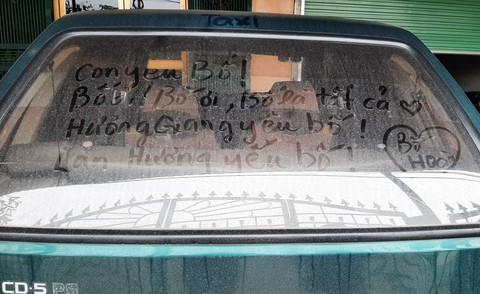 Taxi
Con yêu Bố!
Bố ơi, Bố là tất cả
Hương Giang yêu bố!
Hương yêu bố!
Bố
CD-5